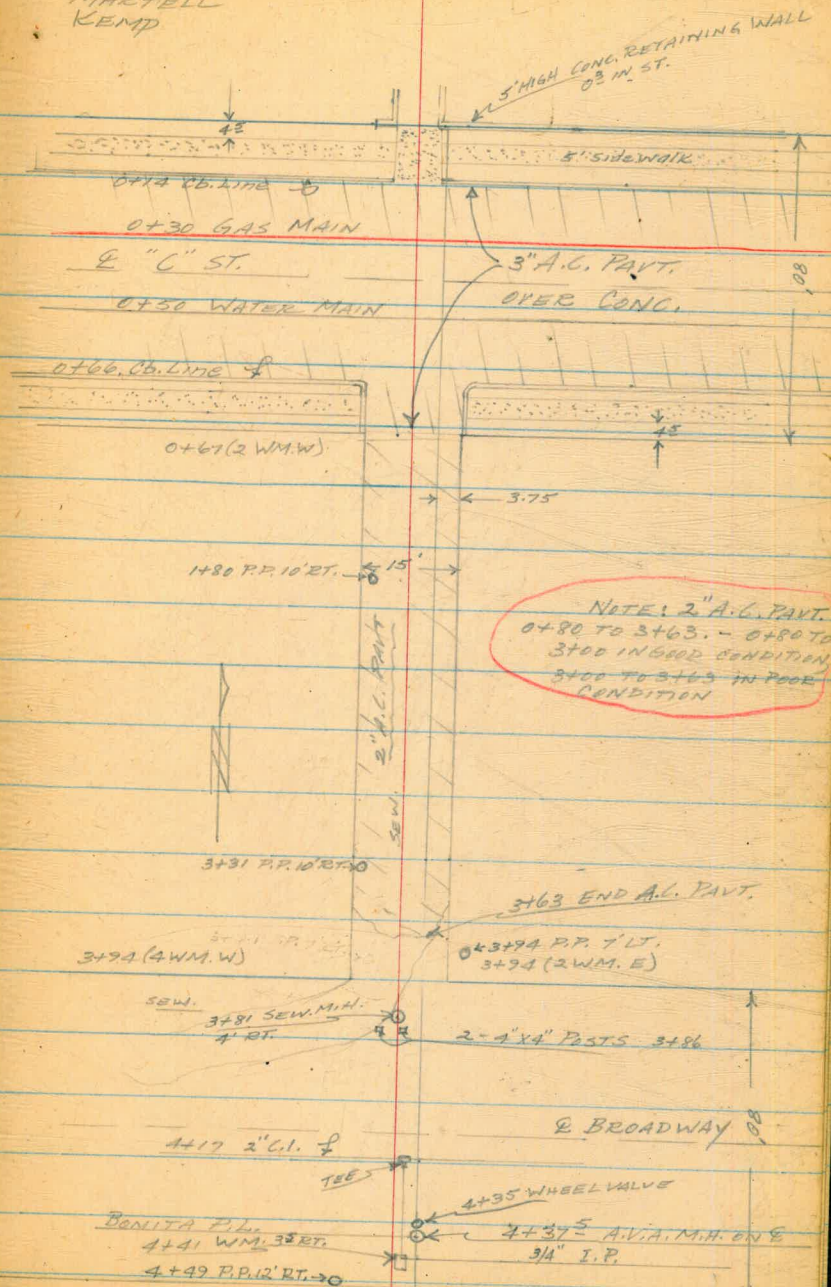 MARTELL
KEMP
5' HIGH CONC. RETAINING WALL
0³ IN ST.
4⁵
5' sidewalk
0+14 Cb. Line
0+30 GAS MAIN
℄ "C" ST.
3" A.C. PAVT.
OVER CONC.
80'
0+50 WATER MAIN
0+66 Cb. Line
0+67 (2 WM.W)
4⁵
3.75
1+80 P.P. 10' RT.
15'
NOTE: 2" A.C. PAVT.
0+80 TO 3+63. - 0+80 TO
3+00 IN GOOD CONDITION
3+00 TO 3+63 IN POOR
CONDITION
2" A.C. PAVT
SEW.
3+31 P.P. 10' RT.
3+63 END A.C. PAVT.
3+94 (4 WM.W)
3+94 P.P. 7' LT.
3+94 (2 WM. E)
SEW.
3+81 SEW. M.H.
4' RT.
2 - 4" X 4" POSTS 3+86
℄ BROADWAY
80'
4+17 2" C.I.
TEE
4+35 WHEEL VALVE
BONITA P.L.
4+37⁵ A.V.A. M.H. ON ℄
4+41 WM. 3⁵ RT.
3/4" I.P.
4+49 P.P. 12' RT.